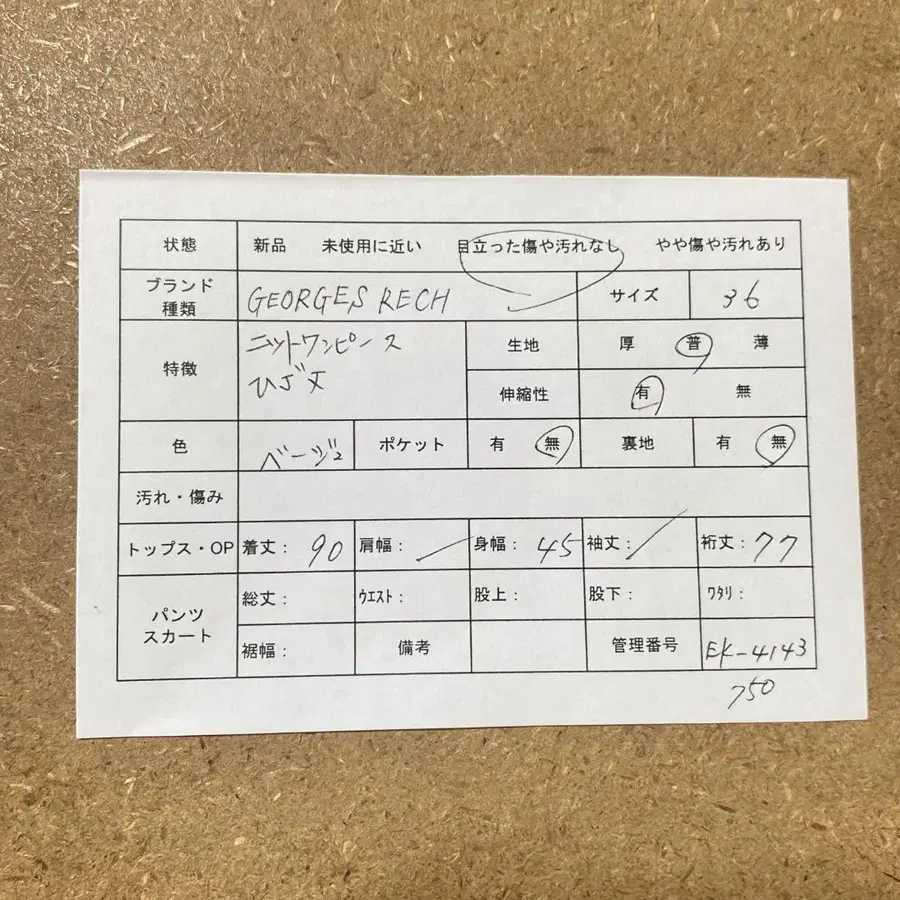 状態 新品 未使用に近い 目立った傷や汚れなし やや傷や汚れあり
ブランド 種類 GEORGES RECH サイズ 36
特徴 ニットワンピース ひざ丈
生地 厚 普 薄
伸縮性 有 無
色 ベージュ ポケット 有 無 裏地 有 無
汚れ・傷み
トップス・OP 着丈: 90 肩幅: 身幅: 45 袖丈: 裄丈: 77
パンツ スカート 総丈: ウエスト: 股上: 股下: ワタリ:
裾幅: 備考 管理番号 EK-4143
750